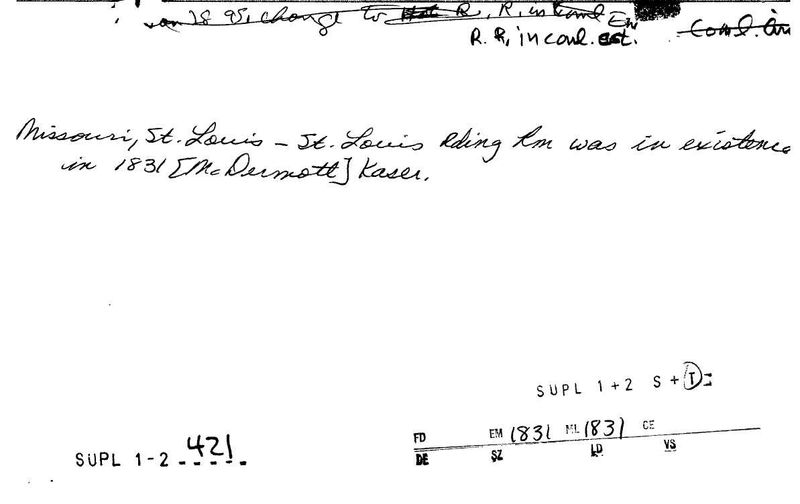 on 28 95, change to R. R, in conl En
R. R, in conl. est. Conl. in
Missouri, St. Louis - St. Louis Rding Rm was in existence
in 1831 [McDermott] Kaser.
SUPL 1+2 S + T =
FD EM 1831 ML 1831 CE
DE SZ LD VS
SUPL 1-2 421